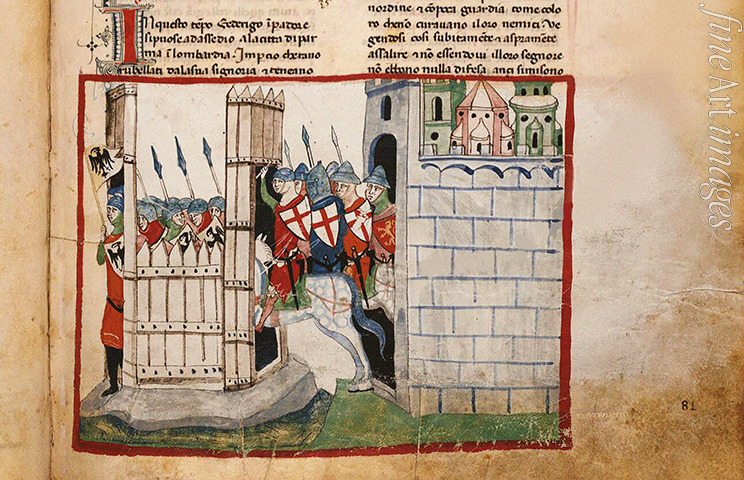 In questo tẽpo federigo ĩpadore
si puose adassedio alacitta di par
ma ĩ lombardia. Impcio cherano
rubellati dalasua signoria ⁊ teneano
nordine ⁊ cõperi guardia, come colo
ro cheno curavano iloro nemici. Ve
gendosi cosi subitamẽte ⁊ aspramẽte
assalire ⁊ nõ essendo vi illoro segnore
nõ ebono nulla difesa anzi si misono
81
fine Art images